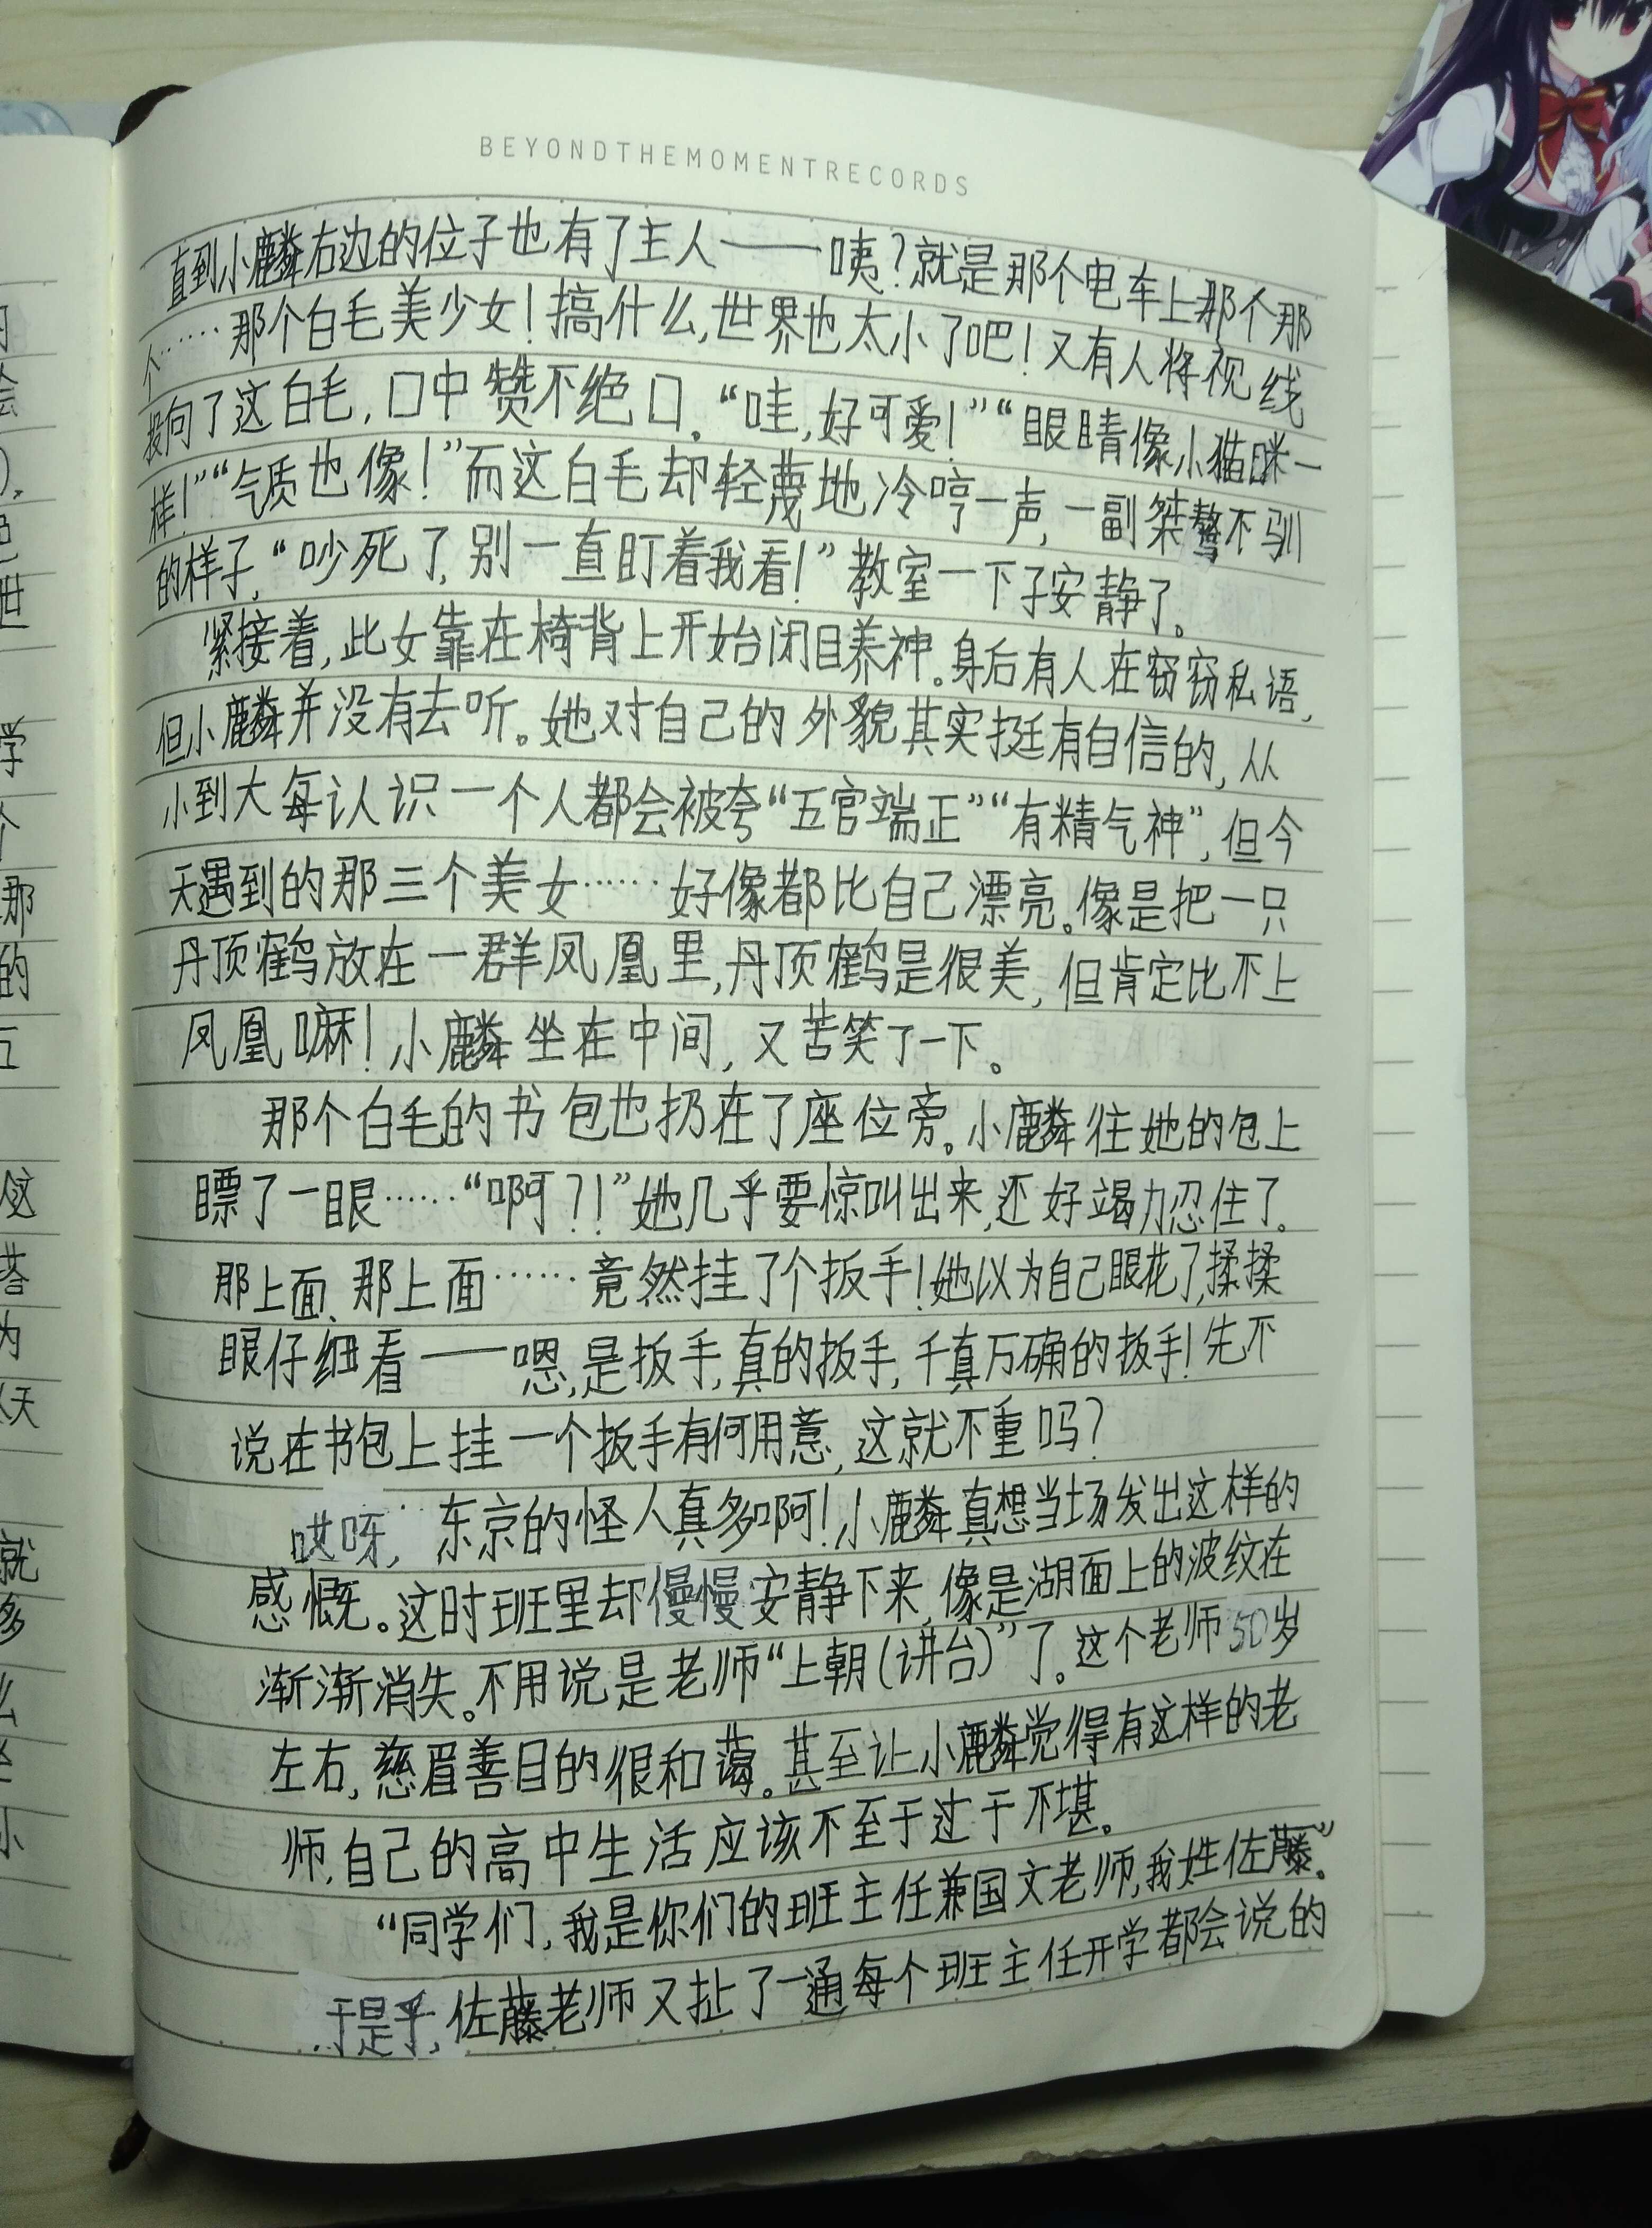 BEYONDTHEMOMENTRECORDS
直到小麟右边的位子也有了主人——咦?就是那个电车上那个那
个……那个白毛美少女!搞什么,世界也太小了吧!又有人将视线
投向了这白毛,口中赞不绝口。“哇,好可爱!”“眼睛像小猫咪一
样!”“气质也像!”而这白毛却轻蔑地冷哼一声,一副桀骜不驯
的样子,“吵死了,别一直盯着我看!”教室一下子安静了。
紧接着,此女靠在椅背上开始闭目养神。身后有人在窃窃私语,
但小麟并没有去听。她对自己的外貌其实挺有自信的,从
小到大每认识一个人都会被夸“五官端正”“有精气神”,但今
天遇到的那三个美女……好像都比自己漂亮。像是把一只
丹顶鹤放在一群凤凰里,丹顶鹤是很美,但肯定比不上
凤凰嘛!小麟坐在中间,又苦笑了一下。
那个白毛的书包也扔在了座位旁。小麟往她的包上
瞟了一眼……“啊?!”她几乎要惊叫出来,还好竭力忍住了。
那上面、那上面……竟然挂了个扳手!她以为自己眼花了,揉揉
眼仔细看——嗯,是扳手,真的扳手,千真万确的扳手!先不
说在书包上挂一个扳手有何用意,这就不重吗?
哎呀,东京的怪人真多啊!小麟真想当场发出这样的
感慨。这时班里却慢慢安静下来,像是湖面上的波纹在
渐渐消失。不用说是老师“上朝(讲台)”了。这个老师50岁
左右,慈眉善目的很和蔼。甚至让小麟觉得有这样的老
师,自己的高中生活应该不至于过于不堪。
“同学们,我是你们的班主任兼国文老师,我姓佐藤。”
于是乎,佐藤老师又扯了一通每个班主任开学都会说的